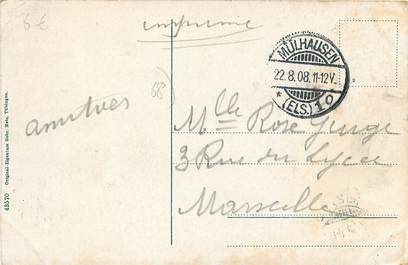 6€
imprimé
MÜLHAUSEN
22.8.08.11-12V.
* (ELS.) 10
68)
amitiés
Mlle Rose
3 Rue du Lycée
Marseille
43570 Original-Eigentum Gebr. Metz, Tübingen.